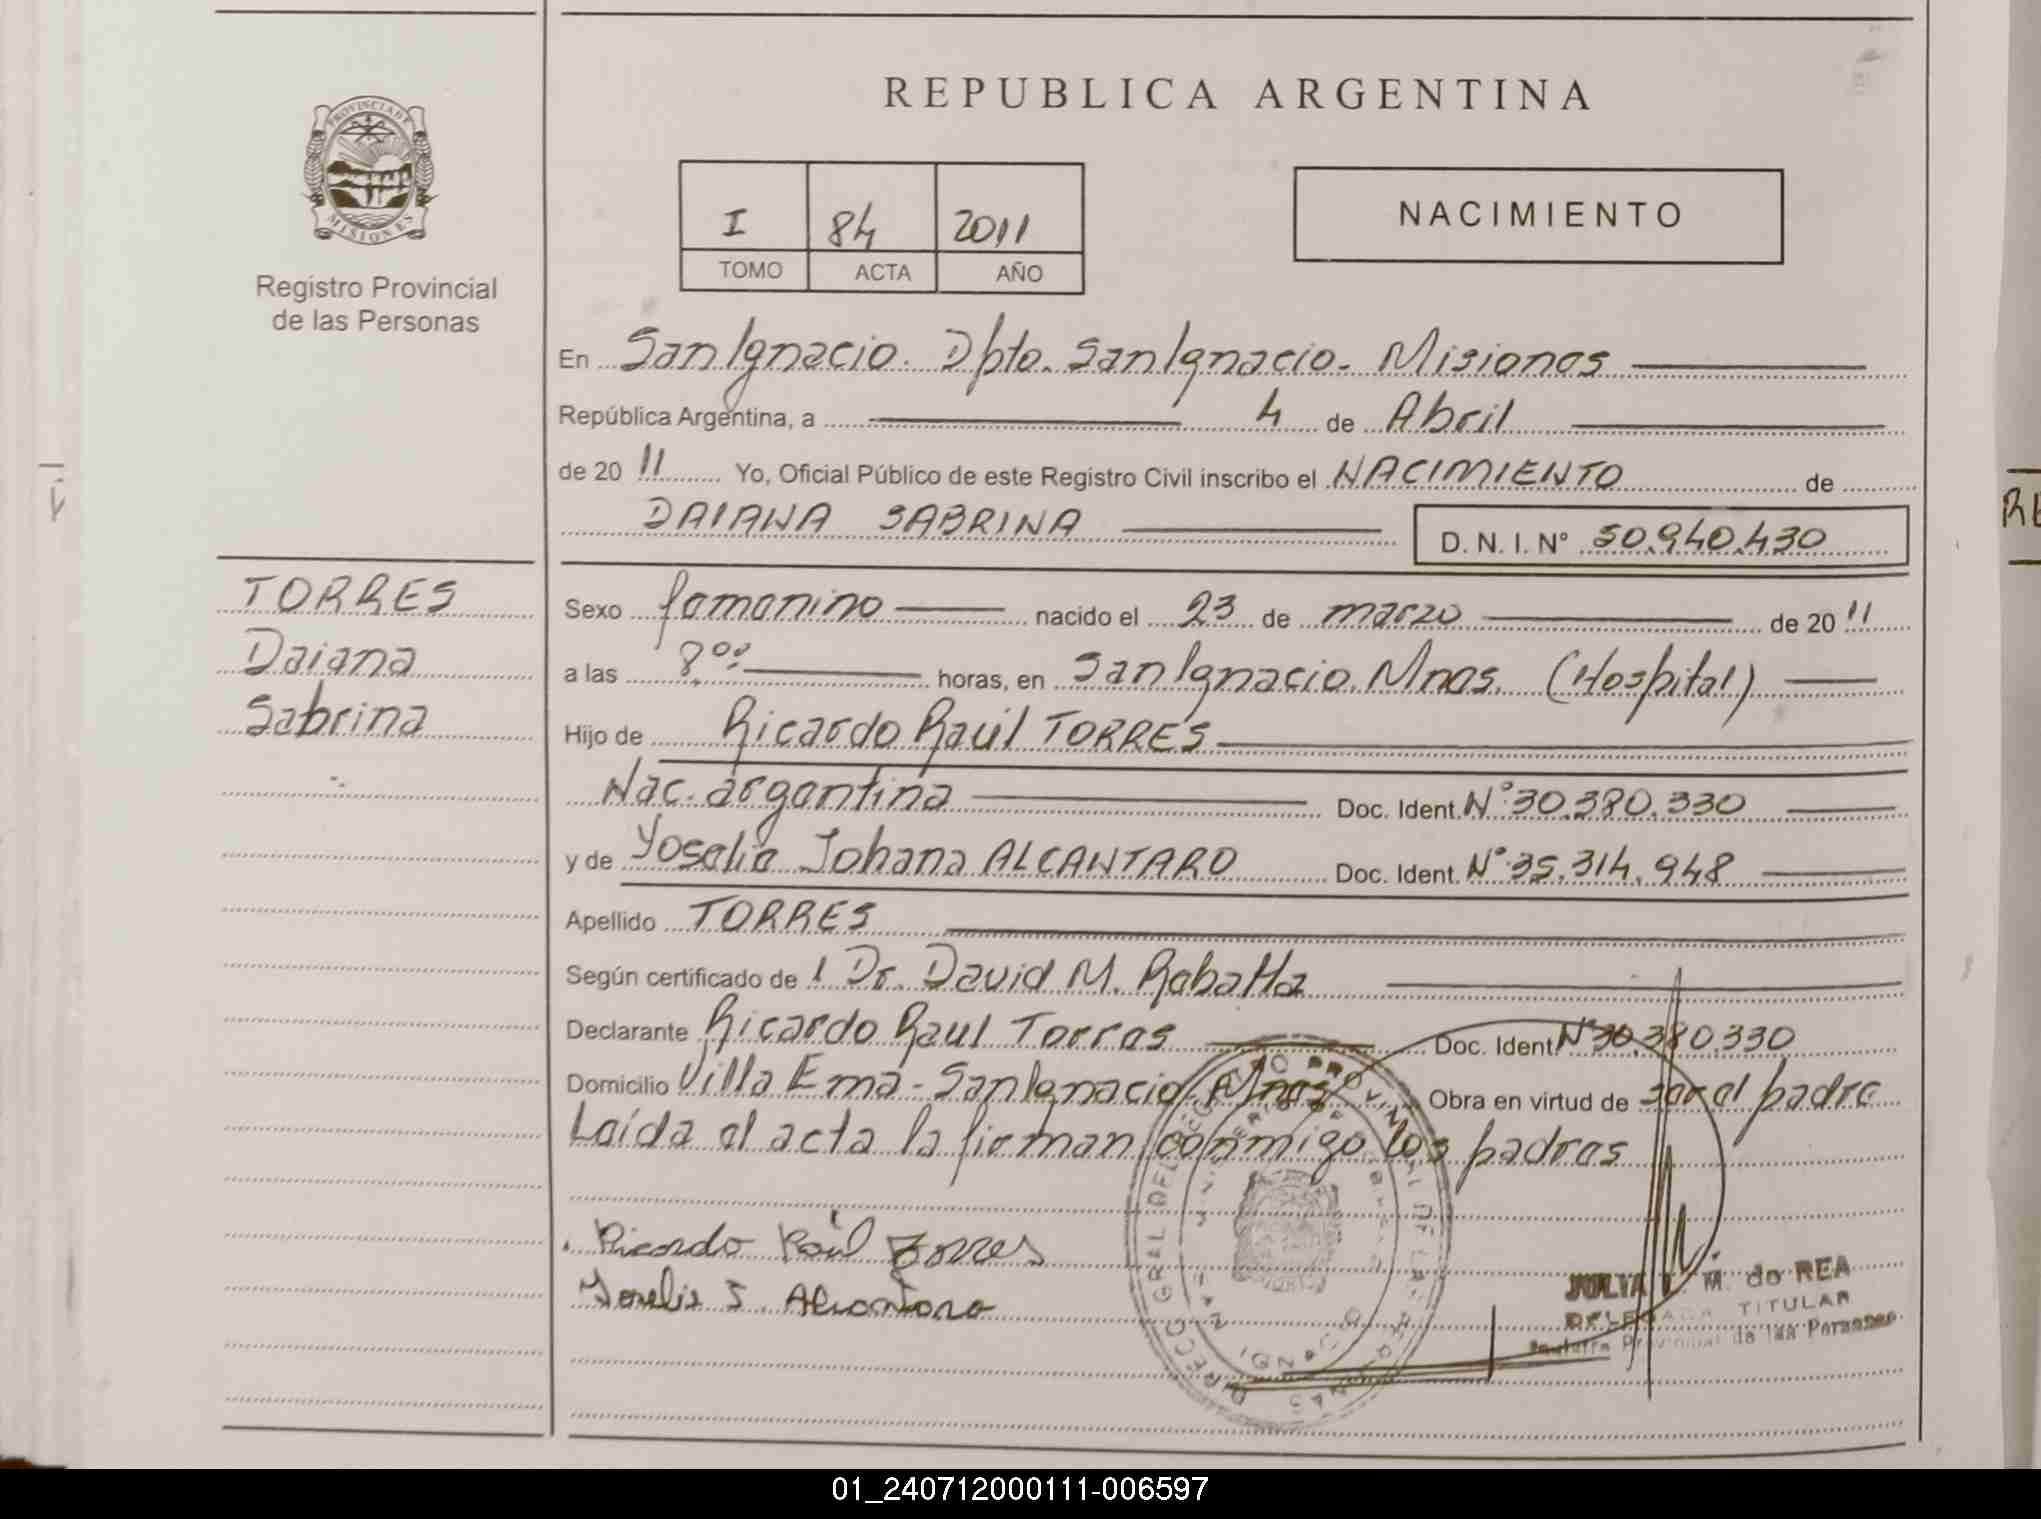 REPUBLICA ARGENTINA
PROVINCIA DE
MISIONES
Registro Provincial
de las Personas
I 84 2011
TOMO ACTA AÑO
NACIMIENTO
En San Ignacio. Dpto. San Ignacio. Misiones
República Argentina, a 4 de Abril
de 20 11 Yo, Oficial Público de este Registro Civil inscribo el NACIMIENTO de
DAIANA SABRINA D. N. I. N° 50.940.430
TORRES
Daiana
Sabrina
Sexo femenino nacido el 23 de marzo de 20 11
a las 8,00 horas, en San Ignacio. Mnes. (Hospital)
Hijo de Ricardo Raúl TORRES
Nac. argentina Doc. Ident. N° 30.380.330
y de Yoselie Johana ALCANTARO Doc. Ident. N° 35.314.948
Apellido TORRES
Según certificado de 1 Dr. David M. Robatta
Declarante Ricardo Raul Torres Doc. Ident. N° 30.380.330
Domicilio Villa Ema - San Ignacio Mnes Obra en virtud de ser el padre
Leída el acta la firman conmigo los padres
Ricardo Raúl Torres
Yoselie J. Alcantaro
JULIA M. do REA
DELEGADA TITULAR
Registro Provincial de las Personas
RE
01_240712000111-006597